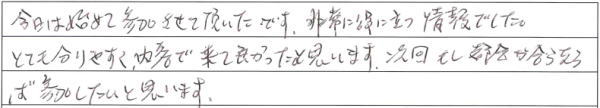 今日は始めて参加させて頂いたです。非常に役に立つ情報でした。
とても分りやすく、内容で来て良かったと思います。次回もし都合が合うなら
ば参加したいと思います。